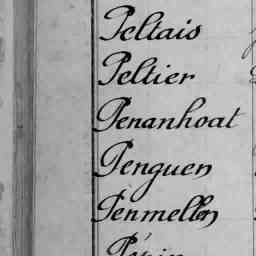 Peltais
Peltier
Penanhoat
Penguen
Penmellen
Pépin